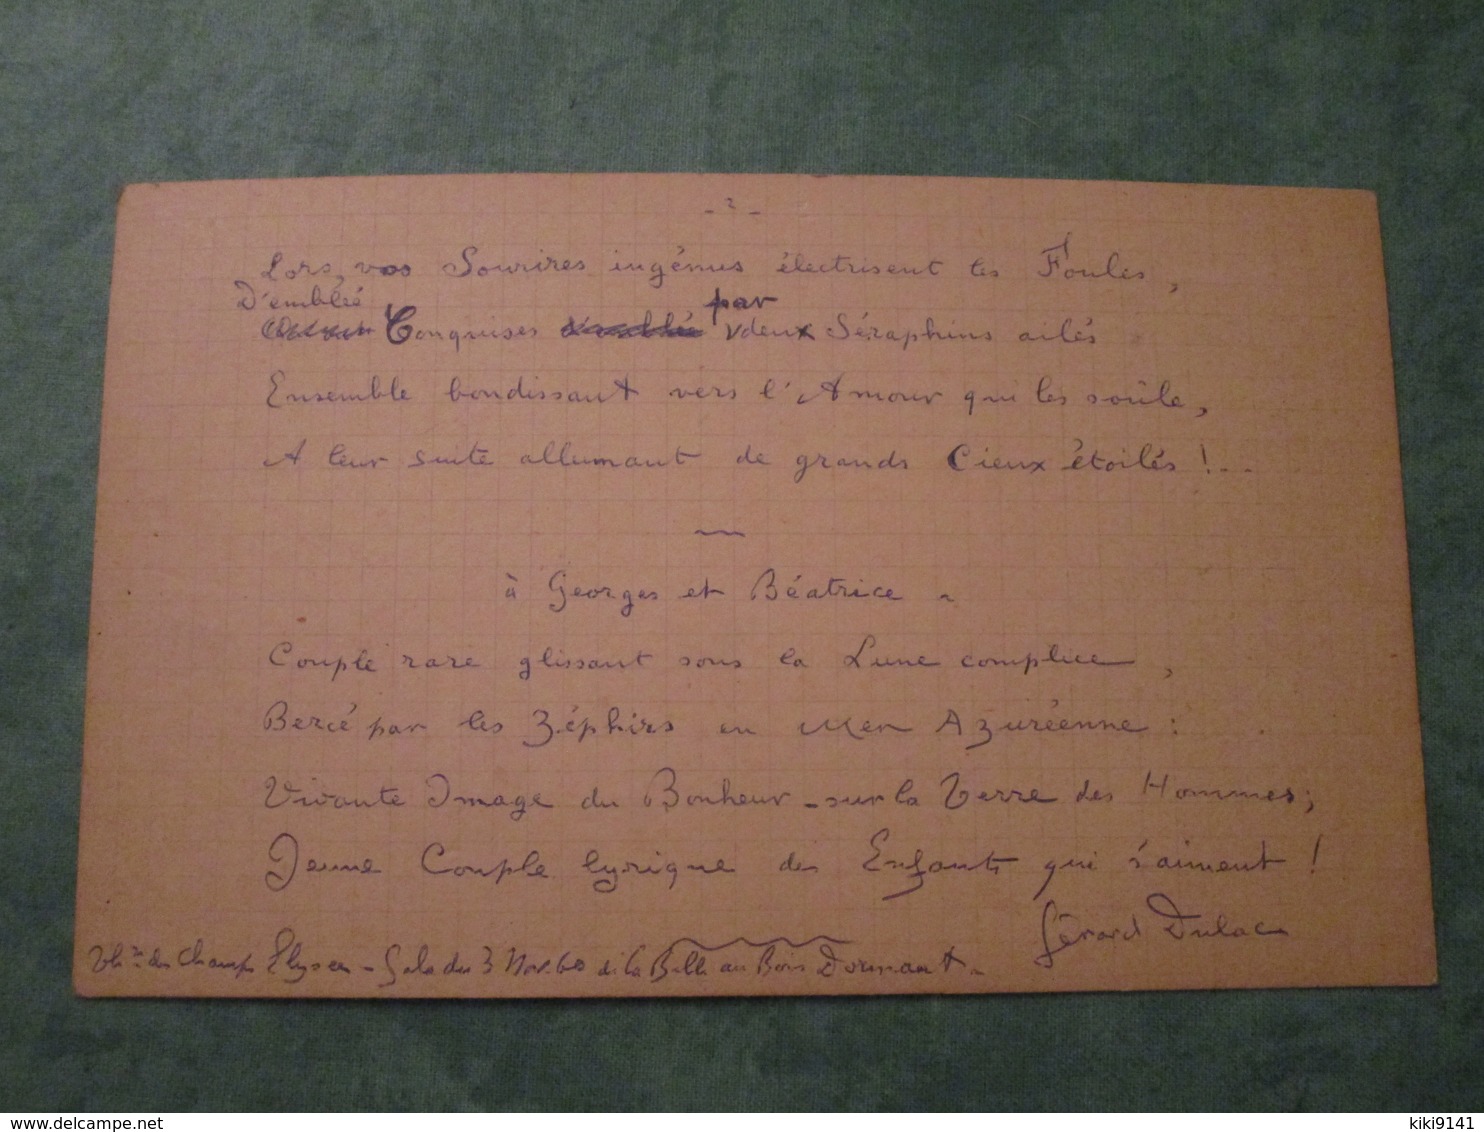 - 2 -
Lors, vos Sourires ingénus électrisent les Foules,
D'emblée par
Conquises deux Séraphins ailés
Ensemble bondissant vers l'Amour qui les soûle,
A leur suite allumant de grands Cieux étoilés !...
à Georges et Béatrice -
Couple rare glissant sous la Lune complice,
Bercé par les Zéphirs en Mer Azuréenne :
Vivante Image du Bonheur - sur la Terre des Hommes ;
Jeune Couple lyrique des Enfants qui s'aiment !
Gérard Dulac
Th.re des Champs Elysées - Gala du 3 Nov. 60 de la Belle au Bois Dormant -
delcampe.net
kiki9141